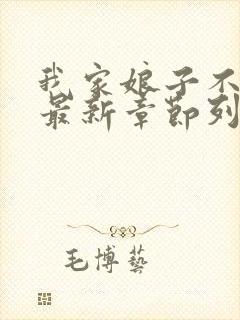 我家娘子不
最新章節列
毛博藝